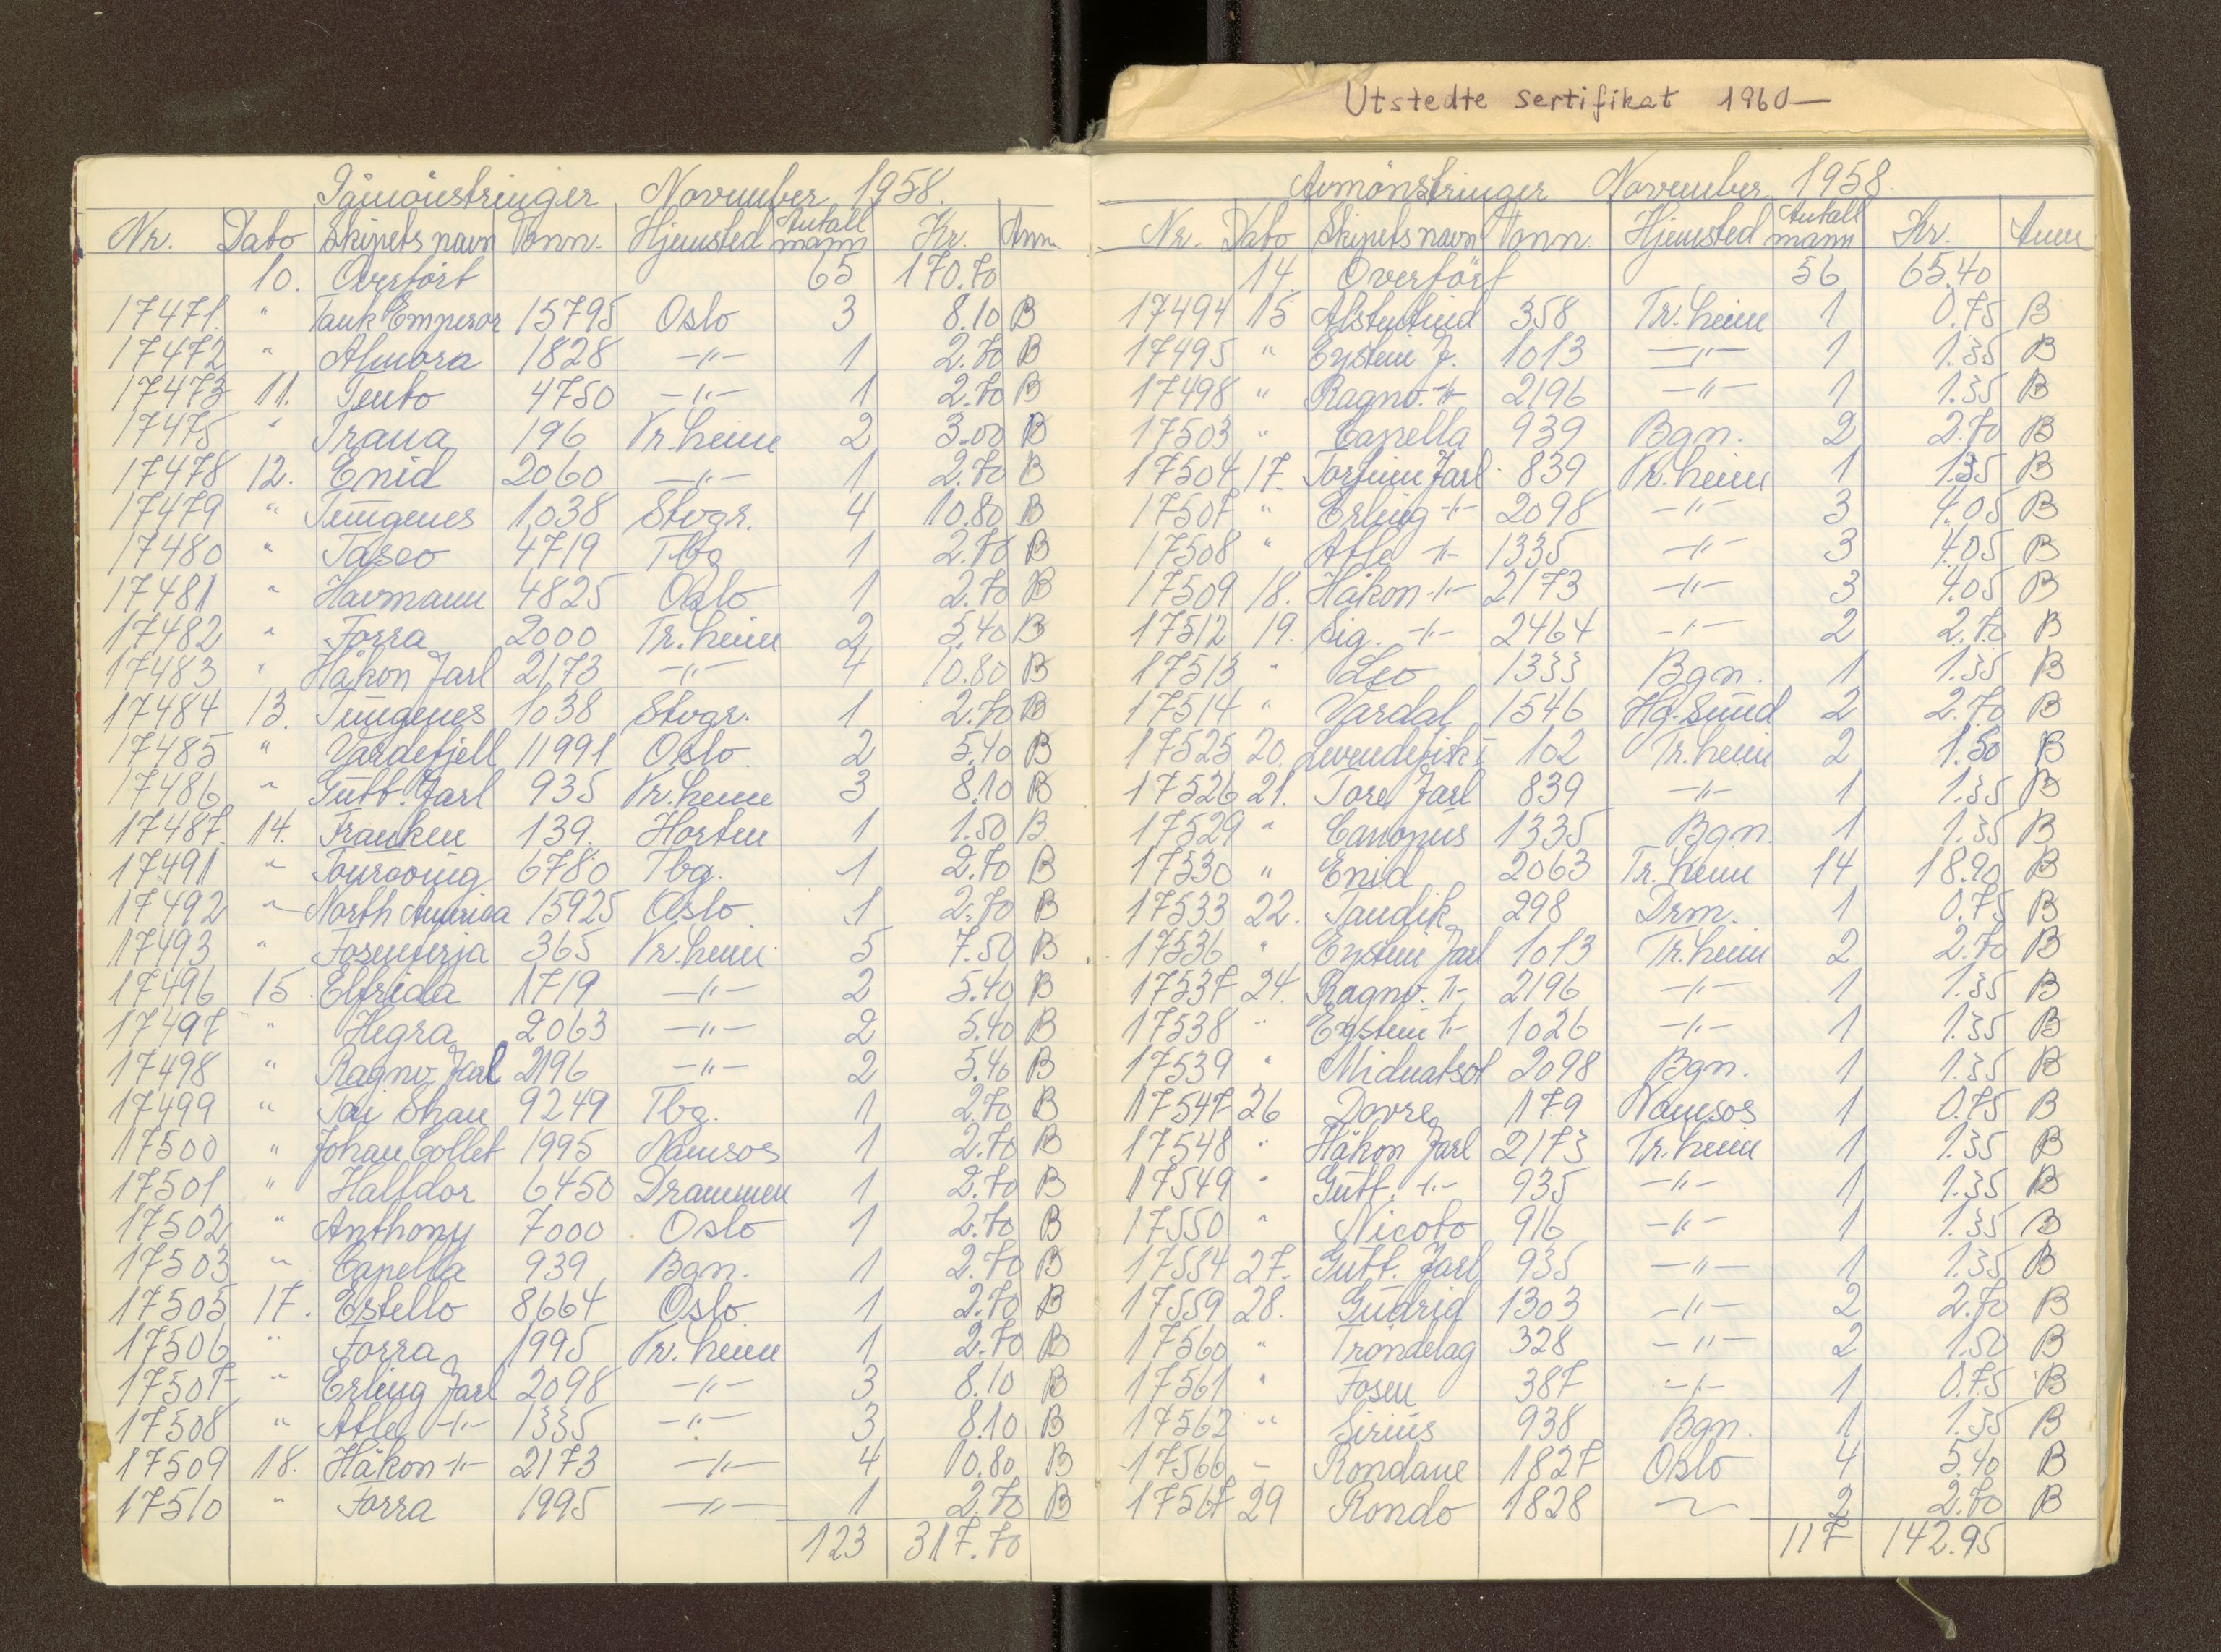 Utstedte sertifikat 1960—
Påmönstringer November 1958.
Nr. Dato Skipets navn Tonn. Hjemsted Antall mann Kr. Anm
10. Overfört 65 170.70
17471. " Tank Emperor 15795 Oslo 3 8.10 B
17472 " Almora 1828 —"— 1 2.70 B
17473 11. Tento 4750 —"— 1 2.70 B
17475 " Trana 196 Tr.heim 2 3.00 B
17478 12. Enid 2060 —"— 1 2.70 B
17479 " Tungenes 1038 Stvgr. 4 10.80 B
17480 " Tasco 4719 Tbg 1 2.70 B
17481 " Havmann 4825 Oslo 1 2.70 B
17482 " Forra 2000 Tr.heim 2 5.40 B
17483 " Håkon Jarl 2173 —"— 4 10.80 B
17484 13. Tungenes 1038 Stvgr. 1 2.70 B
17485 " Vardefjell 11991 Oslo 2 5.40 B
17486 " Gutt. Jarl 935 Tr.heim 3 8.10 B
17487. 14. Franken 139. Horten 1 1.50 B
17491 " Touraoing 6780 Tbg. 1 2.70 B
17492 " North America 15925 Oslo 1 2.70 B
17493 " Fosenferja 365 Tr.heim 5 7.50 B
17496 15 Elfrida 1719 —"— 2 5.40 B
17497 " Hegra 2063 —"— 2 5.40 B
17498 " Ragnv. Jarl 2196 —"— 2 5.40 B
17499 " Tai Shan 9249 Tbg. 1 2.70 B
17500 " Johan Collet 1995 Namsos 1 2.70 B
17501 " Halfdor 6450 Drammen 1 2.70 B
17502 " Anthony 7000 Oslo 1 2.70 B
17503 " Capella 939 Bgn. 1 2.70 B
17505 17. Estello 8664 Oslo 1 2.70 B
17506 " Forra 1995 Tr.heim 1 2.70 B
17507 " Erling Jarl 2098 —"— 3 8.10 B
17508 " Atle —"— 1335 —"— 3 8.10 B
17509 18. Håkon —"— 2173 —"— 4 10.80 B
17510 " Forra 1995 —"— 1 2.70 B
123 317.70
Avmönstringer November 1958.
Nr. Dato Skipets navn Tonn. Hjemsted Antall mann Kr. Anm
14. Overfört 56 65.40
17494 15 Alstentind 358 Tr.heim 1 0.75 B
17495 " Eystein J. 1013 —"— 1 1.35 B
17498 " Ragnv. —"— 2196 —"— 1 1.35 B
17503 " Capella 939 Bgn. 2 2.70 B
17504 17. Torfinn Jarl 839 Tr.heim 1 1.35 B
17507 " Erling —"— 2098 —"— 3 4.05 B
17508 " Atle —"— 1335 —"— 3 4.05 B
17509 18. Håkon —"— 2173 —"— 3 4.05 B
17512 19. Sig. —"— 2464 —"— 2 2.70 B
17513 " Leo 1333 Bgn. 1 1.35 B
17514 " Vardal 1546 Hg.sund 2 2.70 B
17525 20. Levendefisk I 102 Tr.heim 2 1.50 B
17526 21. Tore Jarl 839 —"— 1 1.35 B
17529 " Canopus 1335 Bgn. 1 1.35 B
17530 " Enid 2063 Tr.heim 14 18.90 B
17533 22. Tandik 298 Drm. 1 0.75 B
17536 " Eystein Jarl 1013 Tr.heim 2 2.70 B
17537 24. Ragnv. —"— 2196 —"— 1 1.35 B
17538 " Eystein —"— 1026 —"— 1 1.35 B
17539 " Midnatsol 2098 Bgn. 1 1.35 B
17547 26 Dovre 179 Namsos 1 0.75 B
17548 " Håkon Jarl 2173 Tr.heim 1 1.35 B
17549 " Gutt. —"— 935 —"— 1 1.35 B
17550 " Nicoto 916 —"— 1 1.35 B
17554 27. Gutt. Jarl 935 —"— 1 1.35 B
17559 28. Gudrid 1303 —"— 2 2.70 B
17560 " Tröndelag 328 —"— 2 1.50 B
17561 " Fosen 387 —"— 1 0.75 B
17562 " Sirius 938 Bgn. 1 1.35 B
17566 " Rondane 1827 Oslo 4 5.40 B
17567 29 Rondo 1828 —"— 2 2.70 B
117 142.95